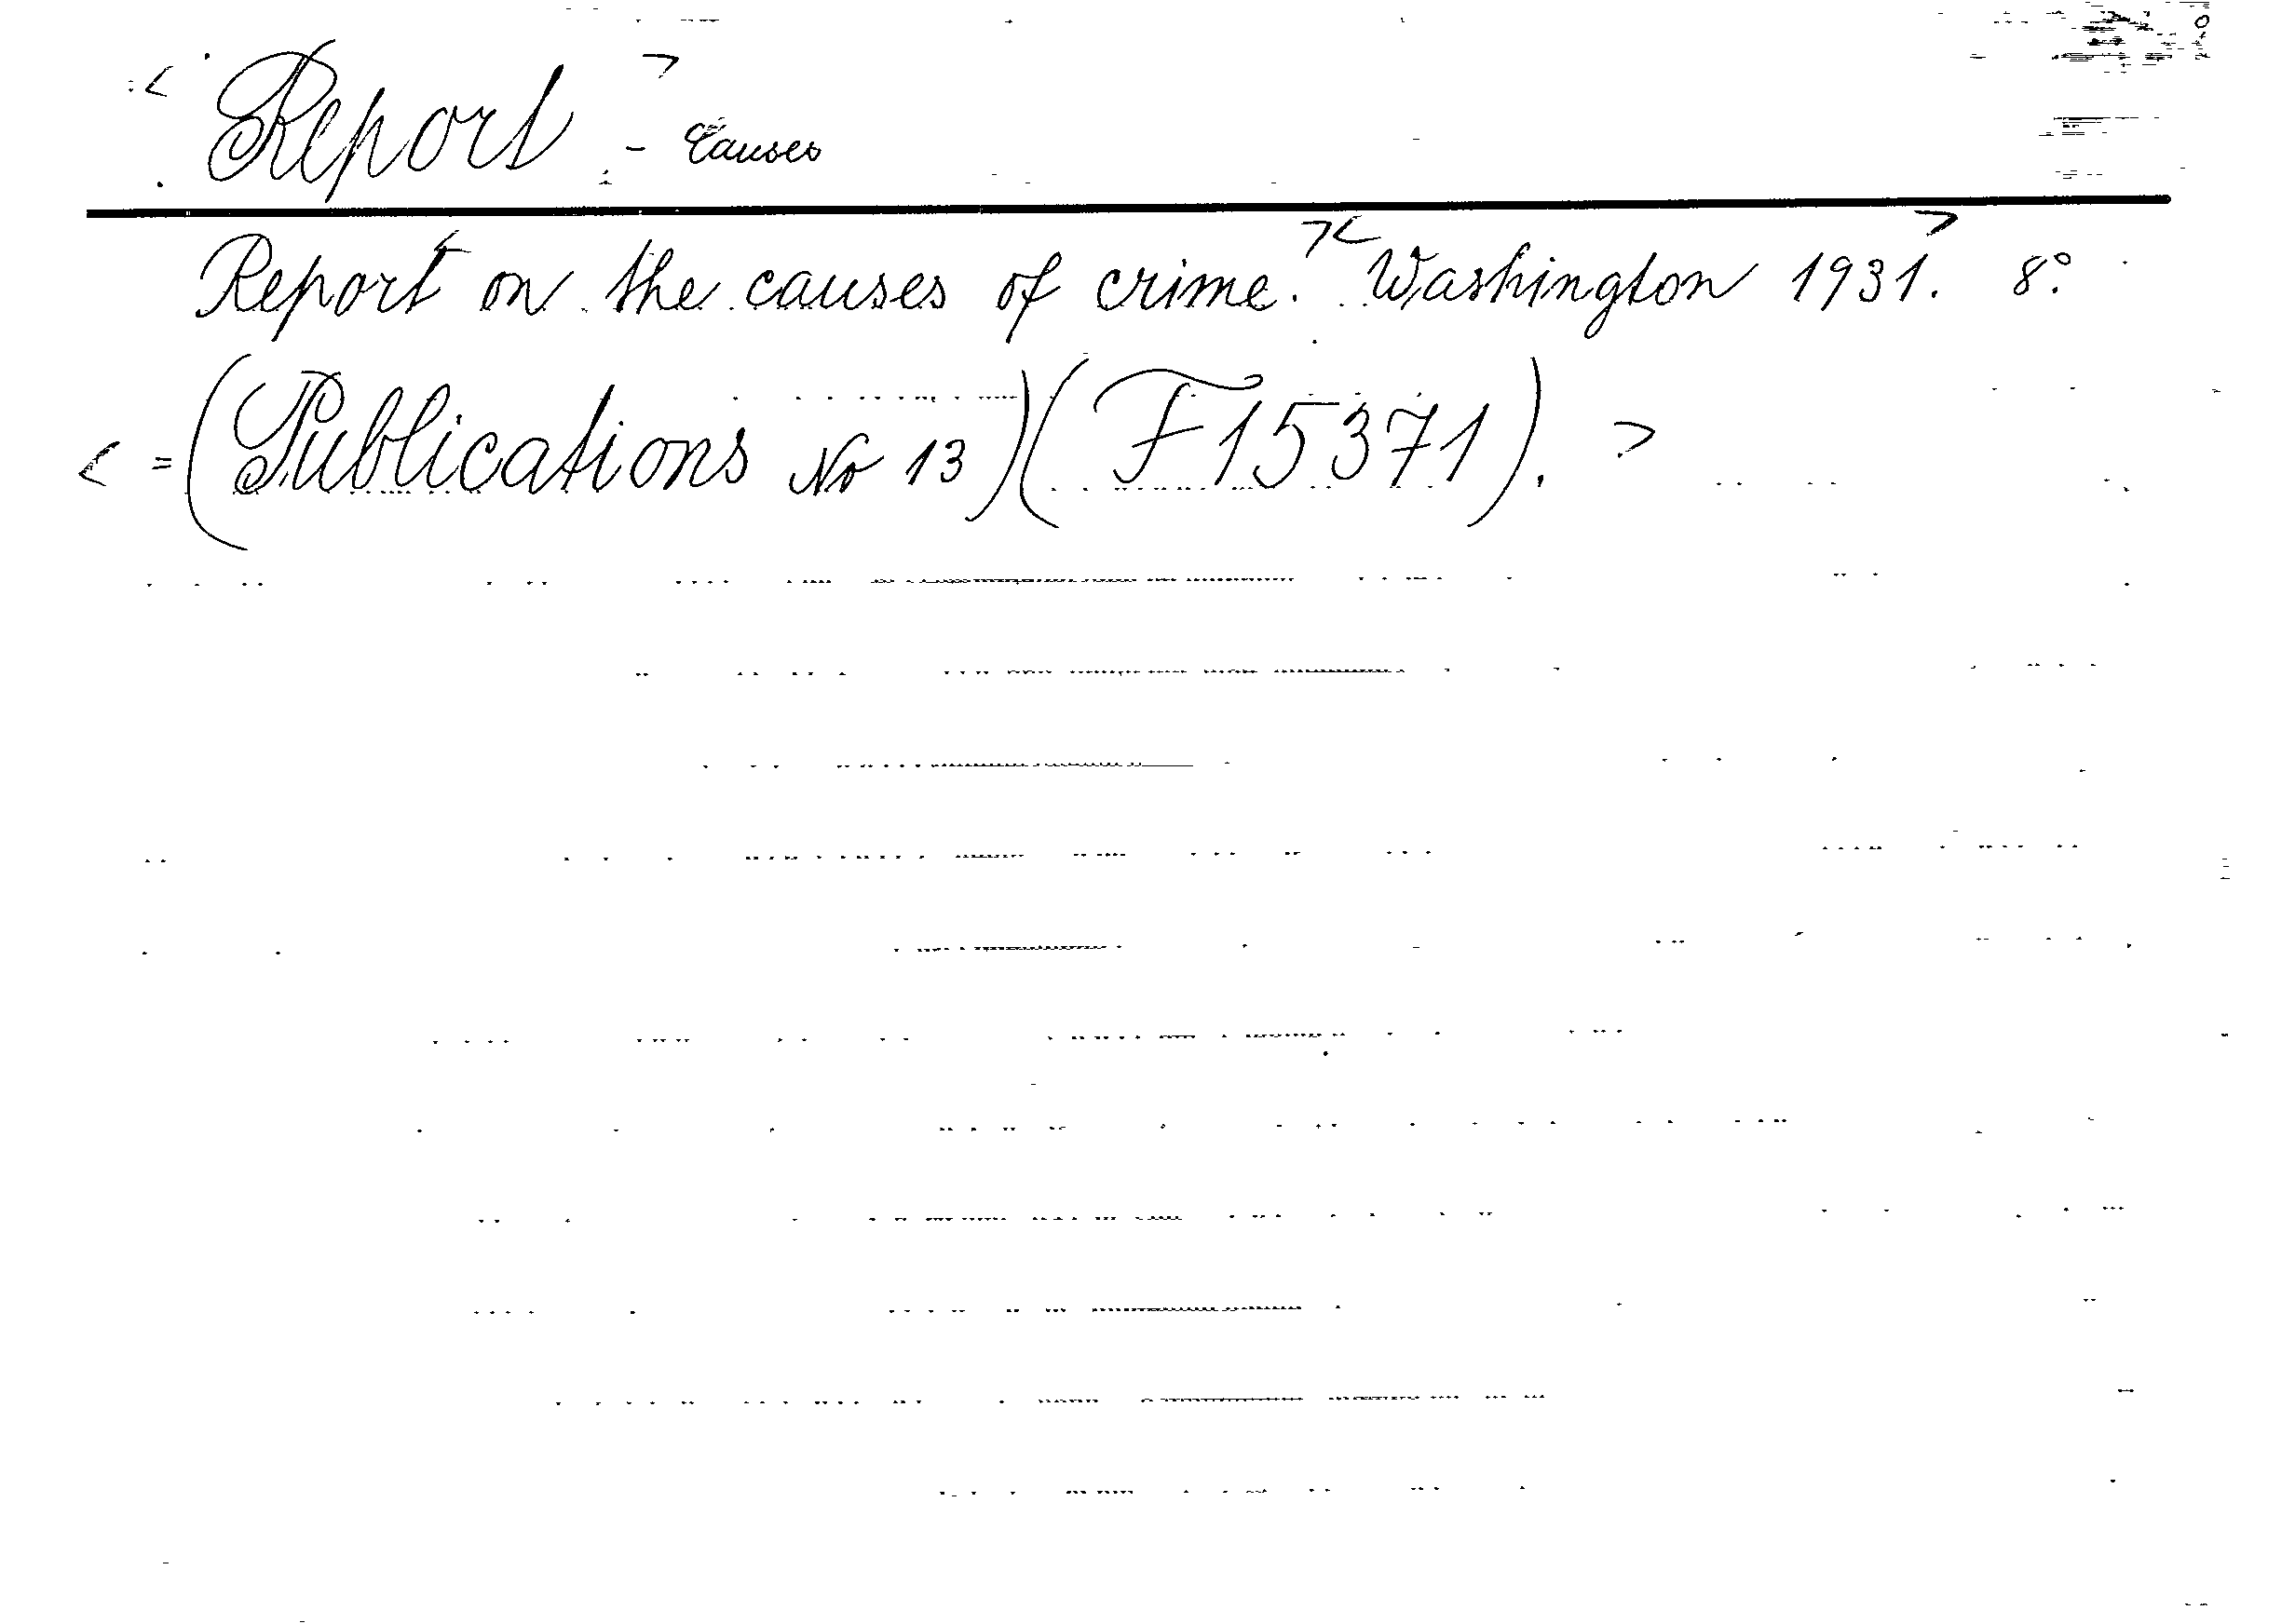 < Report > - Causes
Report < on the causes of crime. > < Washington 1931. > 8°.
< = (Publications No 13) (F 15371). >